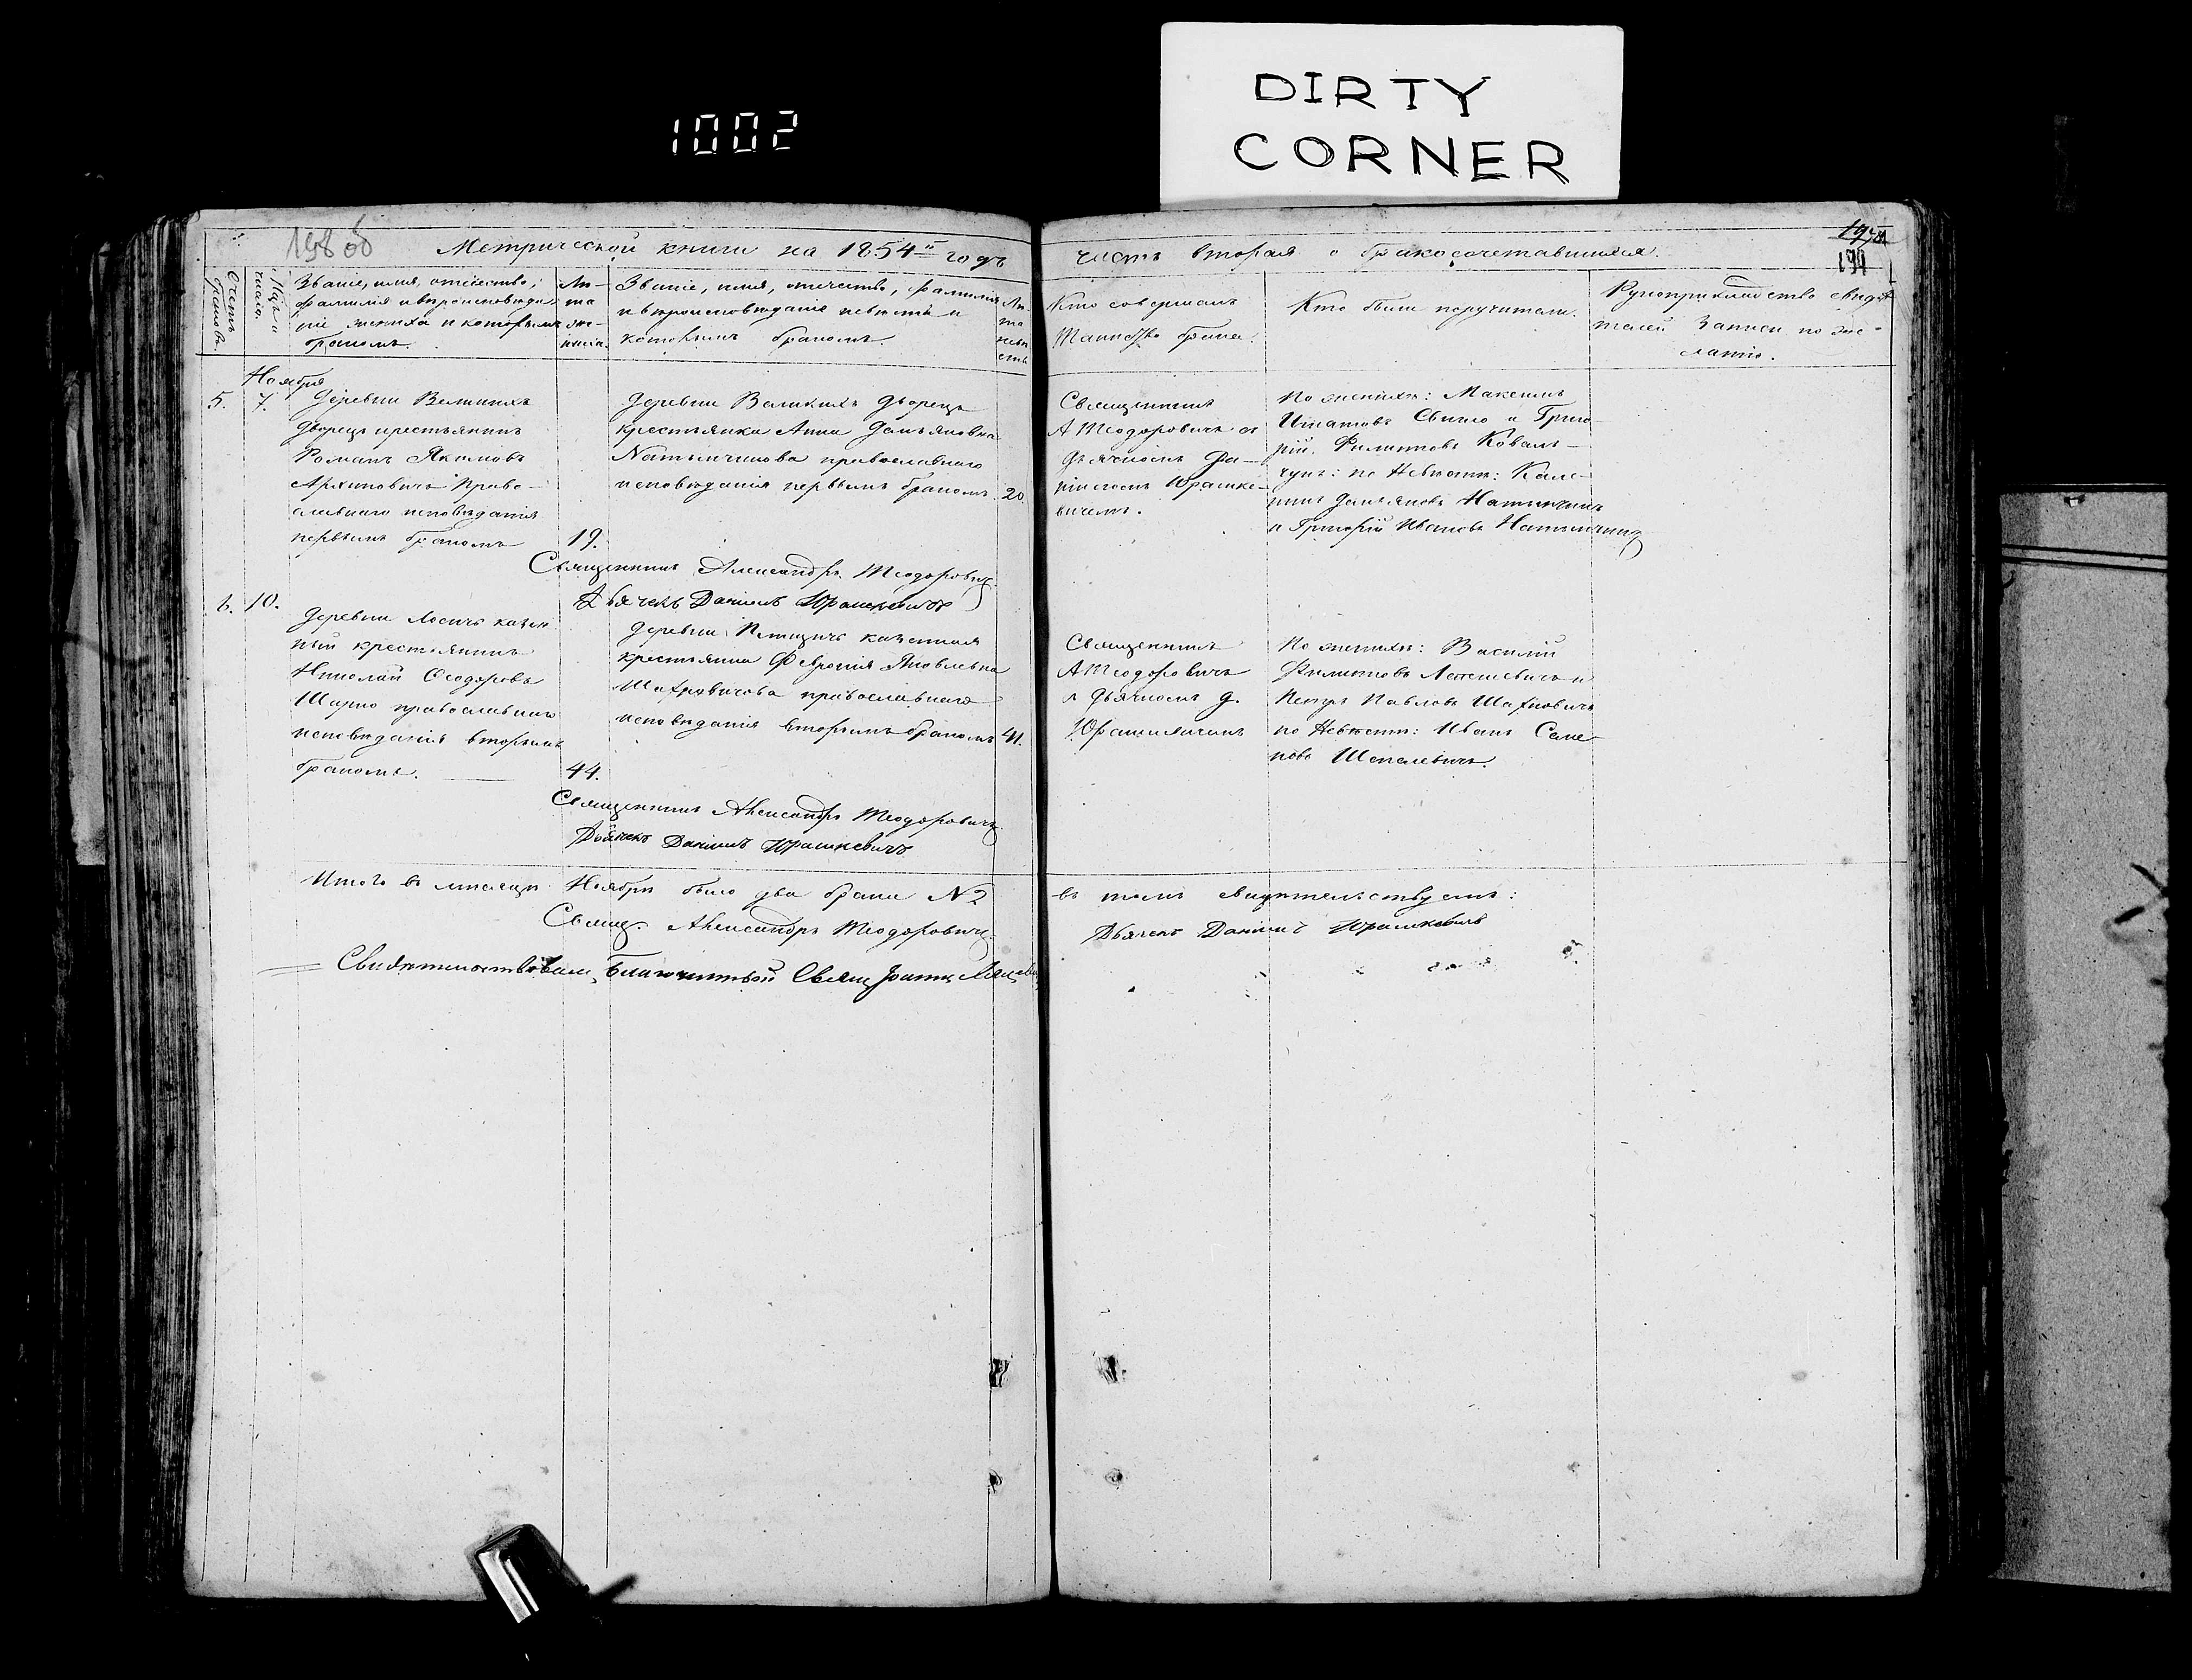 1002
DIRTY
CORNER
Метрической книги на 1854й годъ
часть вторая о бракосочетавшихся.
194
Счетъ браковъ.
Мѣсяцъ и число.
Званіе, имя, отчество,
фамилія и вѣроисповѣда-
ніе жениха и которымъ
бракомъ.
Лѣ-
та
же-
ниха.
Званіе, имя, отчество, фамилія
и вѣроисповѣданіе невѣсты и
которымъ бракомъ.
Лѣ-
та
невѣ
сты
Кто совершалъ
Таинство брака.
Кто были поручители.
Рукоприкладство свидѣ
телей записи по же-
ланію.
Ноября
5.
7.
Деревни Великихъ
Дворецъ крестьянинъ
Романъ Якимовъ
Архиповичъ Право-
славнаго исповѣданія
первымъ бракомъ
19.
Деревни Великихъ Дворецъ
крестьянка Анна Демьяновна
православнаго
исповѣданія первымъ бракомъ.
20
Священникъ
А Теодоровичъ съ
дьячкомъ Да-
ніиломъ Юрашке-
вичемъ.
По женихѣ: Максимъ
Игнатовъ и Григо-
рій Филиповъ Коваль-
чукъ: по Невѣстѣ:
Демьяновъ
и Григорій Ивановъ
Священникъ Александръ Теодоровичъ
Дьячекъ Даніилъ Юрашкевичъ
6.
10.
Деревни Лосичъ казен
ный крестьянинъ
Николай Ѳеодоровъ
православнаго
исповѣданія вторымъ
бракомъ.
44.
Деревни казенная
крестьянка Февронія Яковлевна
православнаго
исповѣданія вторымъ бракомъ
41.
Священникъ
А Теодоровичъ
съ дьячкомъ Д.
По женихѣ: Василій
Филиповъ и
Петръ Павловъ
по Невѣстѣ: Иванъ Семе-
новъ Шепелевичъ.
Священникъ Александръ Теодоровичъ
Дьячекъ Даніилъ Юрашкевичъ
Итого въ мѣсяцѣ Ноябрѣ было два брака №2
въ томъ свидѣтельствуемъ:
Свящ. Александръ Теодоровичъ
Дьячекъ Даніилъ Юрашкевичъ
Свидѣтельствовалъ, Благочинный Свящ